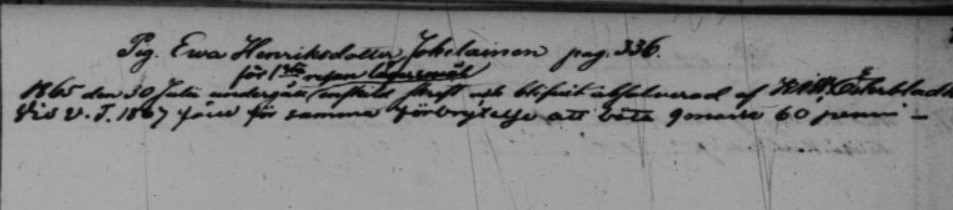 Pig. Ewa Henriksdotter Jokelainen pag. 336.
för 1sta resan lägersmål
1865 den 30 Juli undergått enskild skrift och blifvit absolverad af
Vid V. T. 1867 för samma förbrytelse att böta 9 mark 60 penni –